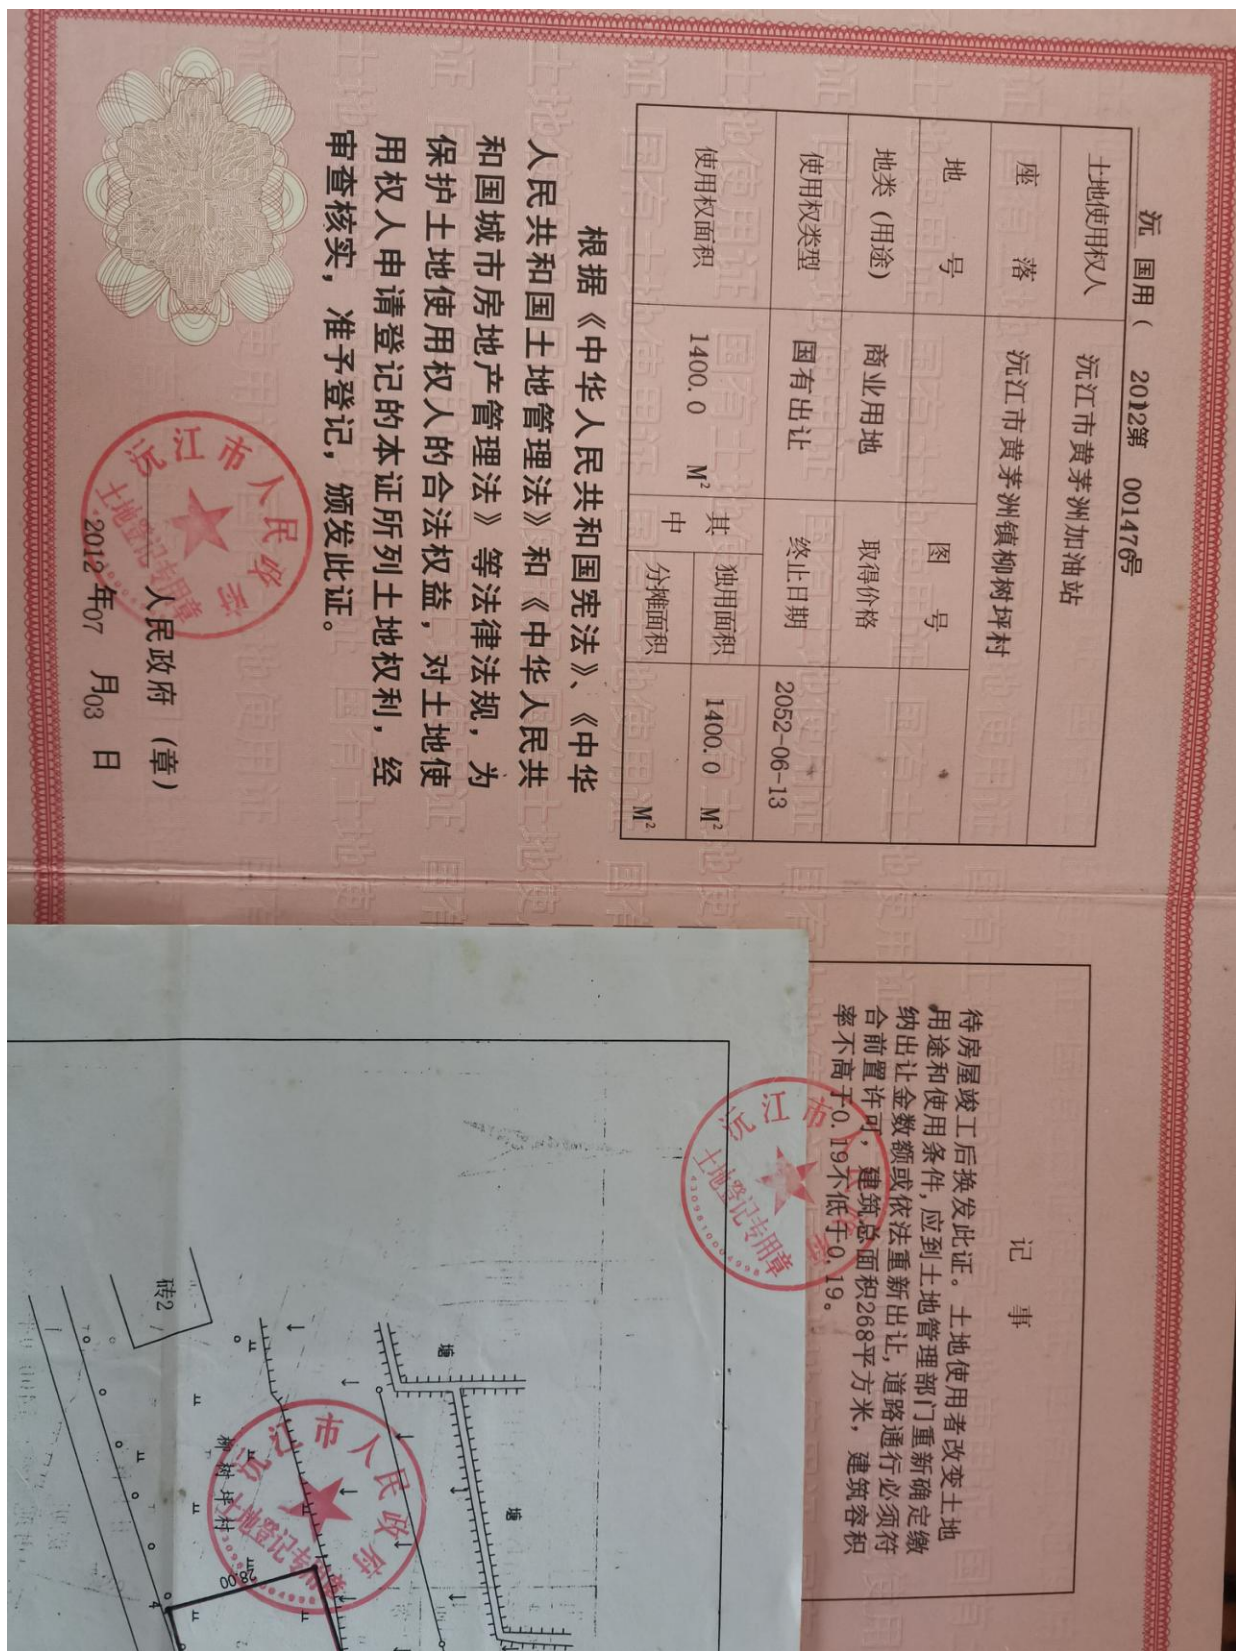 沅 国用( 2012第 001476号
土地使用权人 沅江市黄茅洲加油站
座 落 沅江市黄茅洲镇柳树坪村
地 号 图 号
地类(用途) 商业用地 取得价格
使用权类型 国有出让 终止日期 2052-06-13
使用权面积 1400.0 M² 其中 独用面积 1400.0 M²
分摊面积 M²
根据《中华人民共和国宪法》、《中华
人民共和国土地管理法》和《中华人民共
和国城市房地产管理法》等法律法规,为
保护土地使用权人的合法权益,对土地使
用权人申请登记的本证所列土地权利,经
审查核实,准予登记,颁发此证。
人民政府 (章)
2012 年07 月03 日
沅江市人民政府
土地登记专用章
记 事
待房屋竣工后换发此证。土地使用者改变土地
用途和使用条件,应到土地管理部门重新确定缴
纳出让金数额或依法重新出让,道路通行必须符
合前置许可,建筑总面积268平方米,建筑容积
率不高于0.19不低于0.19。
沅江市人民政府
土地登记专用章
塘
塘
砖2
柳树坪村
28.00
4
沅江市人民政府
土地登记专用章